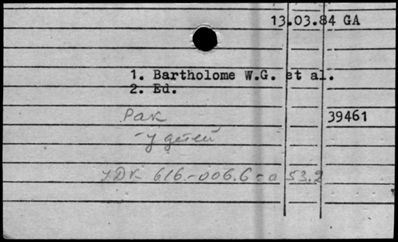 13.03.84 GA
1. Bartholome W.G. et al.
2. Ed.
Рак 39461
у детей
УДК 616.-006.6-053.2